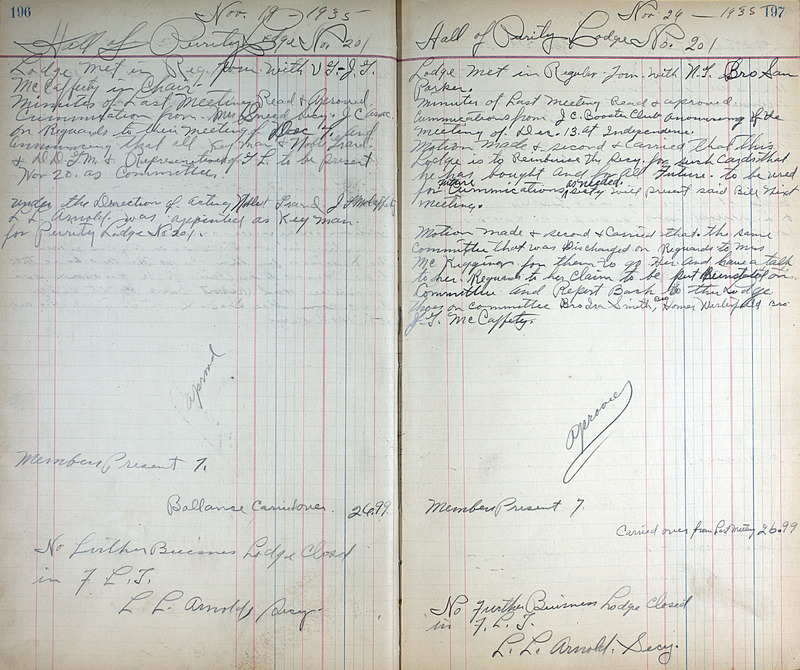 196
Nov. 19 - 1935
Hall of Purity Lodge No. 201
Lodge met in Reg. form. with V G - J. F.
McCafferty in Chair.
Minutes of Last Meeting Read & Aproved.
Cummunication from Mrs Sneed Secy. J C assoc.
on Reguards to their Meeting of Dec and
announcing that all Key man & Noble Grand
& D D G M & Representative of G L. to be present
Nov 20. as Committee.
under the Direction of acting Noble Grand J F McCafferty
L L. Arnold. was appointed as Key man.
for Purity Lodge No 201.
Aproved
Members Present 7.
Ballanse Carried over. 26.99
No Further Buisnes Lodge Closed
in F. L. T.
L L. Arnold, Secy.
197
Nov 26 - 1935
Hall of Purity Lodge No. 201
Lodge met in Regular Form. with N. G. Bro Sam
Parker.
Minutes of Last Meeting Read & aproved.
Cummunications from J. C. Booster Club anouncing of the
Meeting of Dec. 13. at Independence.
Motion Made & second & Carried that this
Lodge is to Reimburse the Secy. for such Cards that
he has bought and for All Future. to be used
for future Cummunications as needed. Secty will present said Bill Next
Meeting.
Motion Made & second & Carried that. the same
Committee that was Discharged on Reguards to Mrs
Mc for them to go her and have a talk
to her. Reguards to her Claim to be put Reinstated on.
Committee and Report Back to this Lodge
thoes on committee Bro Ira Smith, Bro Homer and Bro
J- F. McCafferty.
Aproove
Members Present 7.
Carried over from Last Meeting 26.99
No Further Buisness Lodge Closed
in F. L. T.
L. L. Arnold. Secy.